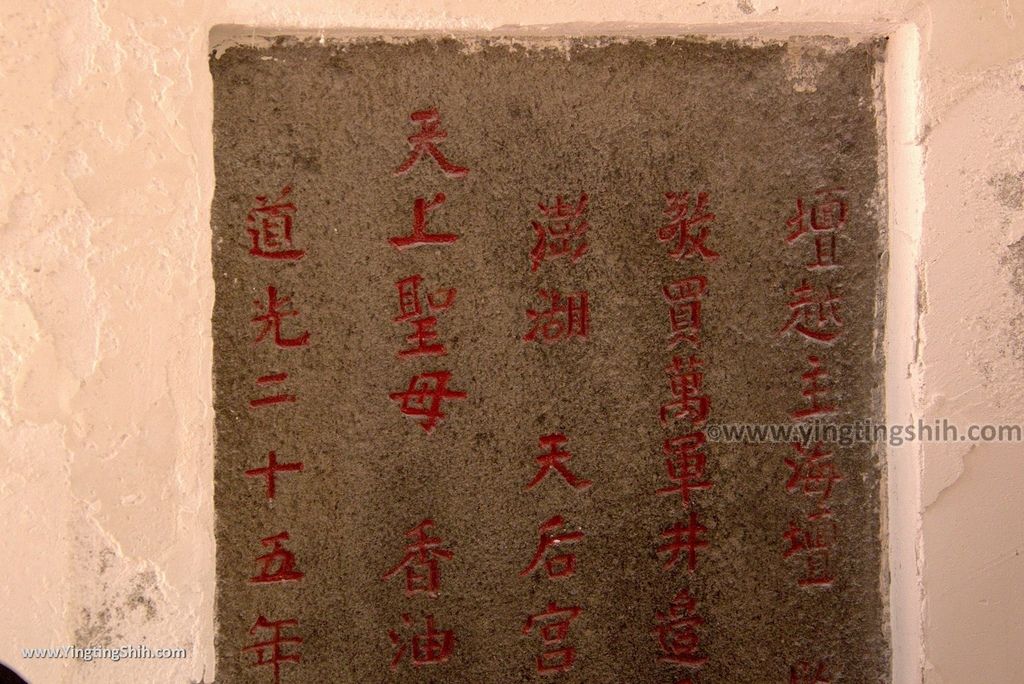 壇越主海壇
發買萬軍井邉
澎湖 天后宮
天上聖母 香油
道光二十五年
©www.yingtingshih.com
www.YingtingShih.com